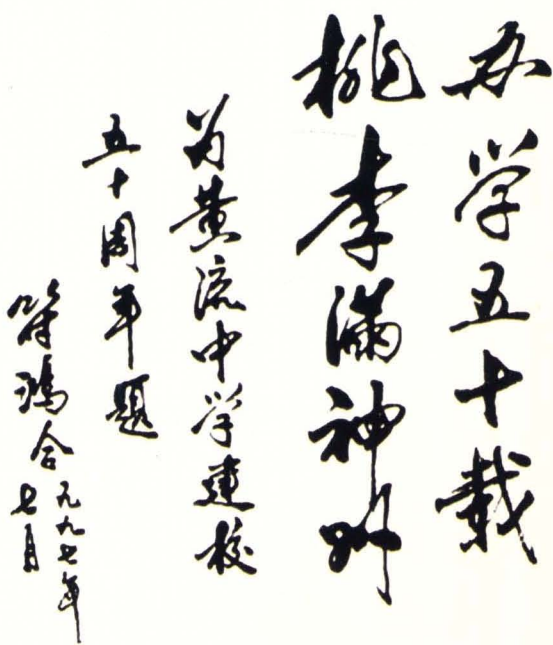 办学五十载
桃李满神州
为黄流中学建校
五十周年题
符鸿合
一九九七年
七月